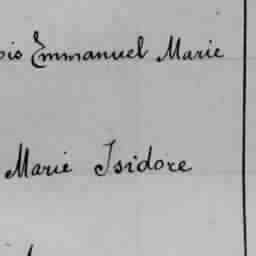 Emmanuel Marie
Marie Isidore